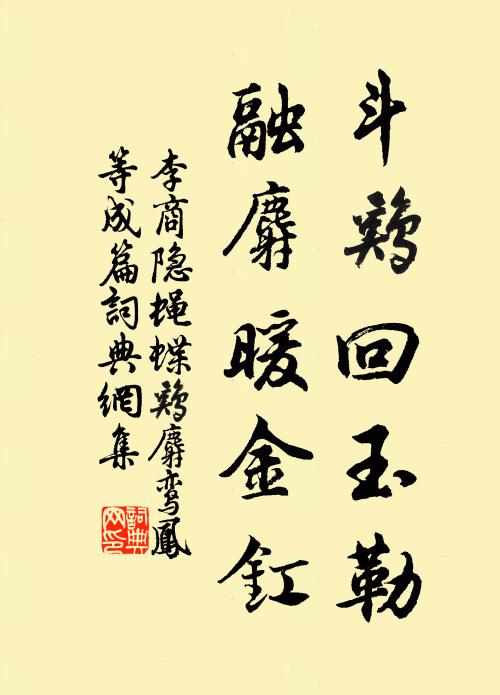 斗鸡回玉勒
融麝暖金釭
李商隐蝇蝶鸡麝鸾凤
等成篇詞典網集
詞典
网印